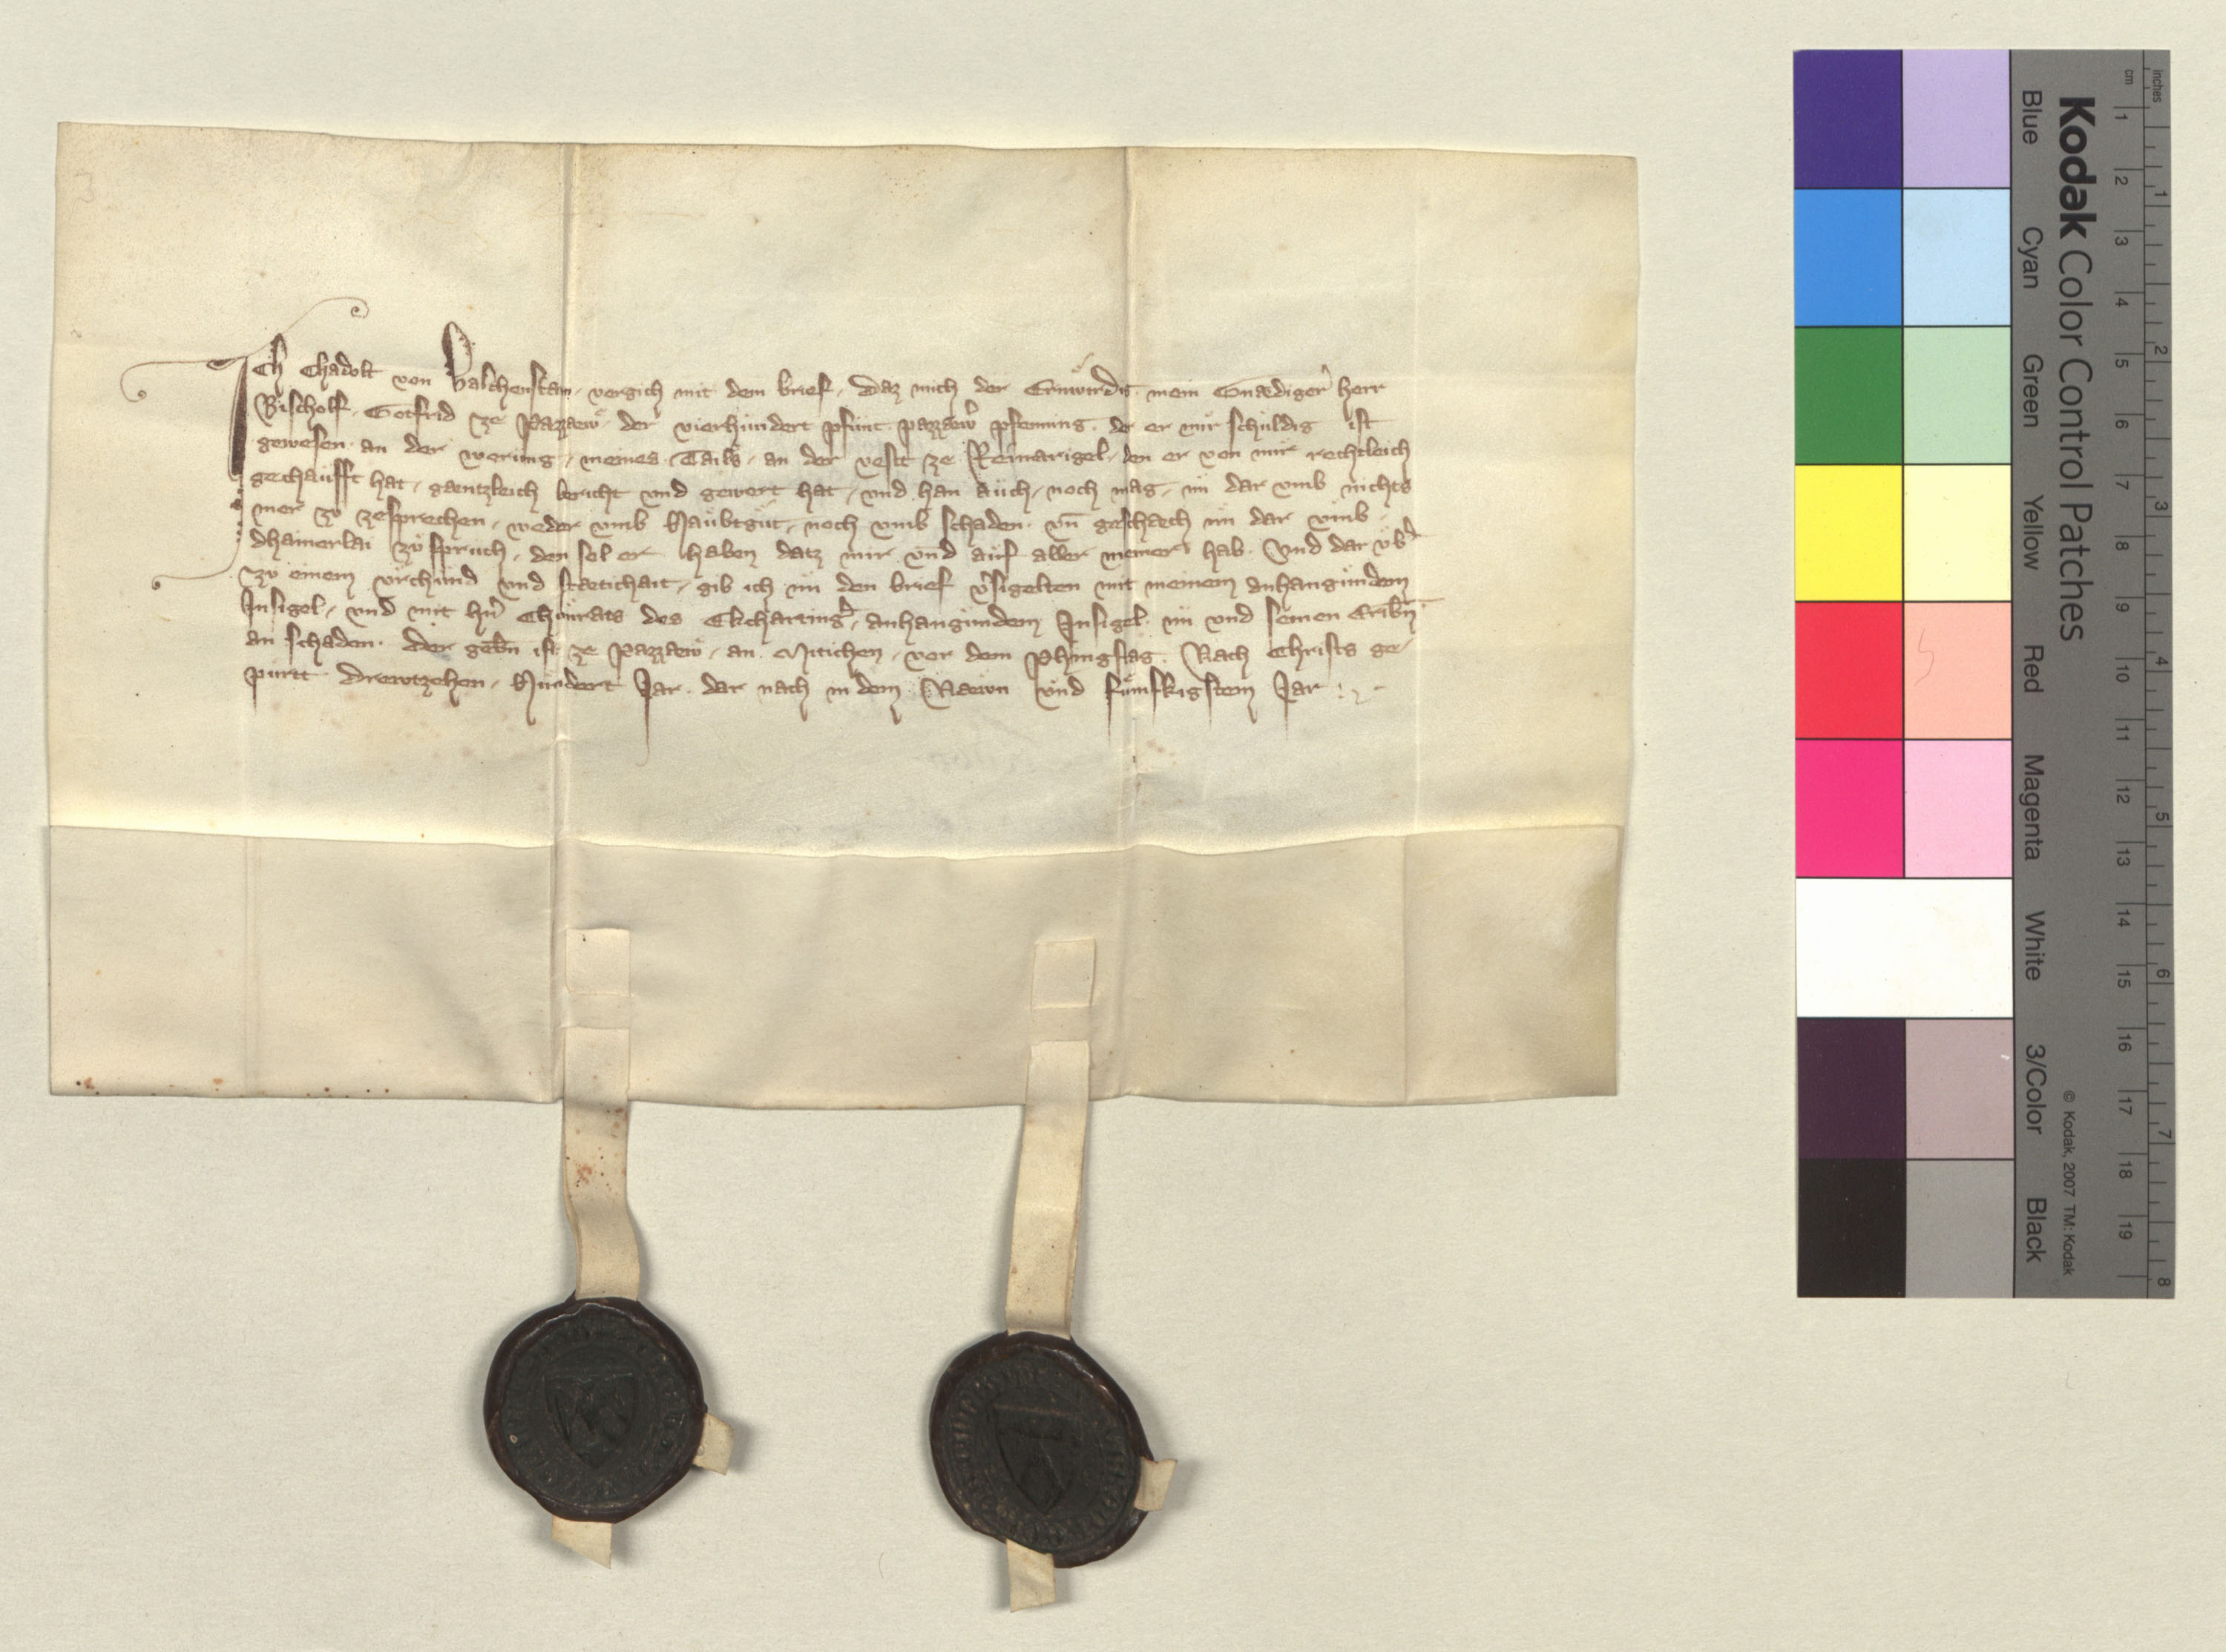 Ich Chadolt von Valchenstain vergich mit dem brief, Daz mich der Erwirdig mein Gnaͤdiger herr
Bischolf Gotfrid ze Pazzaw, der vierhundert pfunt pazzaw̉ pfenning, der er mir schuldig ist
gewesen an der werung meines Tails an der vest ze Remarigel, den er von mir rechtleich
gechaufft hat, gaentzleich bericht vnd gewert hat, vnd han auch noch mag im dar vmb nichts
mer zv zesprechen, weder vmb Haubtgut, noch vmb schaden. vn̄ geschaech im dar vmb
dhainerlai zuspruch, den sol er haben datz mir vnd auf aller meiner hab. Vnd dar vb̉
zv einem vrchund vnd staetichait, gib ich im den brief v̉sigelten mit meinem anhangundem
Insigel, vnd mit hn̉ Chunrats des Ekchartinḡ, anhangundem Insigel im vnd seinen Eribn̄
an schaden. Der gebn̄ ist ze Pazzaw, an Mitichen vor dem Phingstag. Nach Christs ge-
purtt Drewtzehen Hundert Jar dar nach in dem Naewn vnd fumfkigstem Jar
Kodak Color Control Patches
Blue Cyan Green Yellow Red Magenta White 3/Color Black
© Kodak, 2007 TM: Kodak
inches 1 2 3 4 5 6 7 8
cm 1 2 3 4 5 6 7 8 9 10 11 12 13 14 15 16 17 18 19